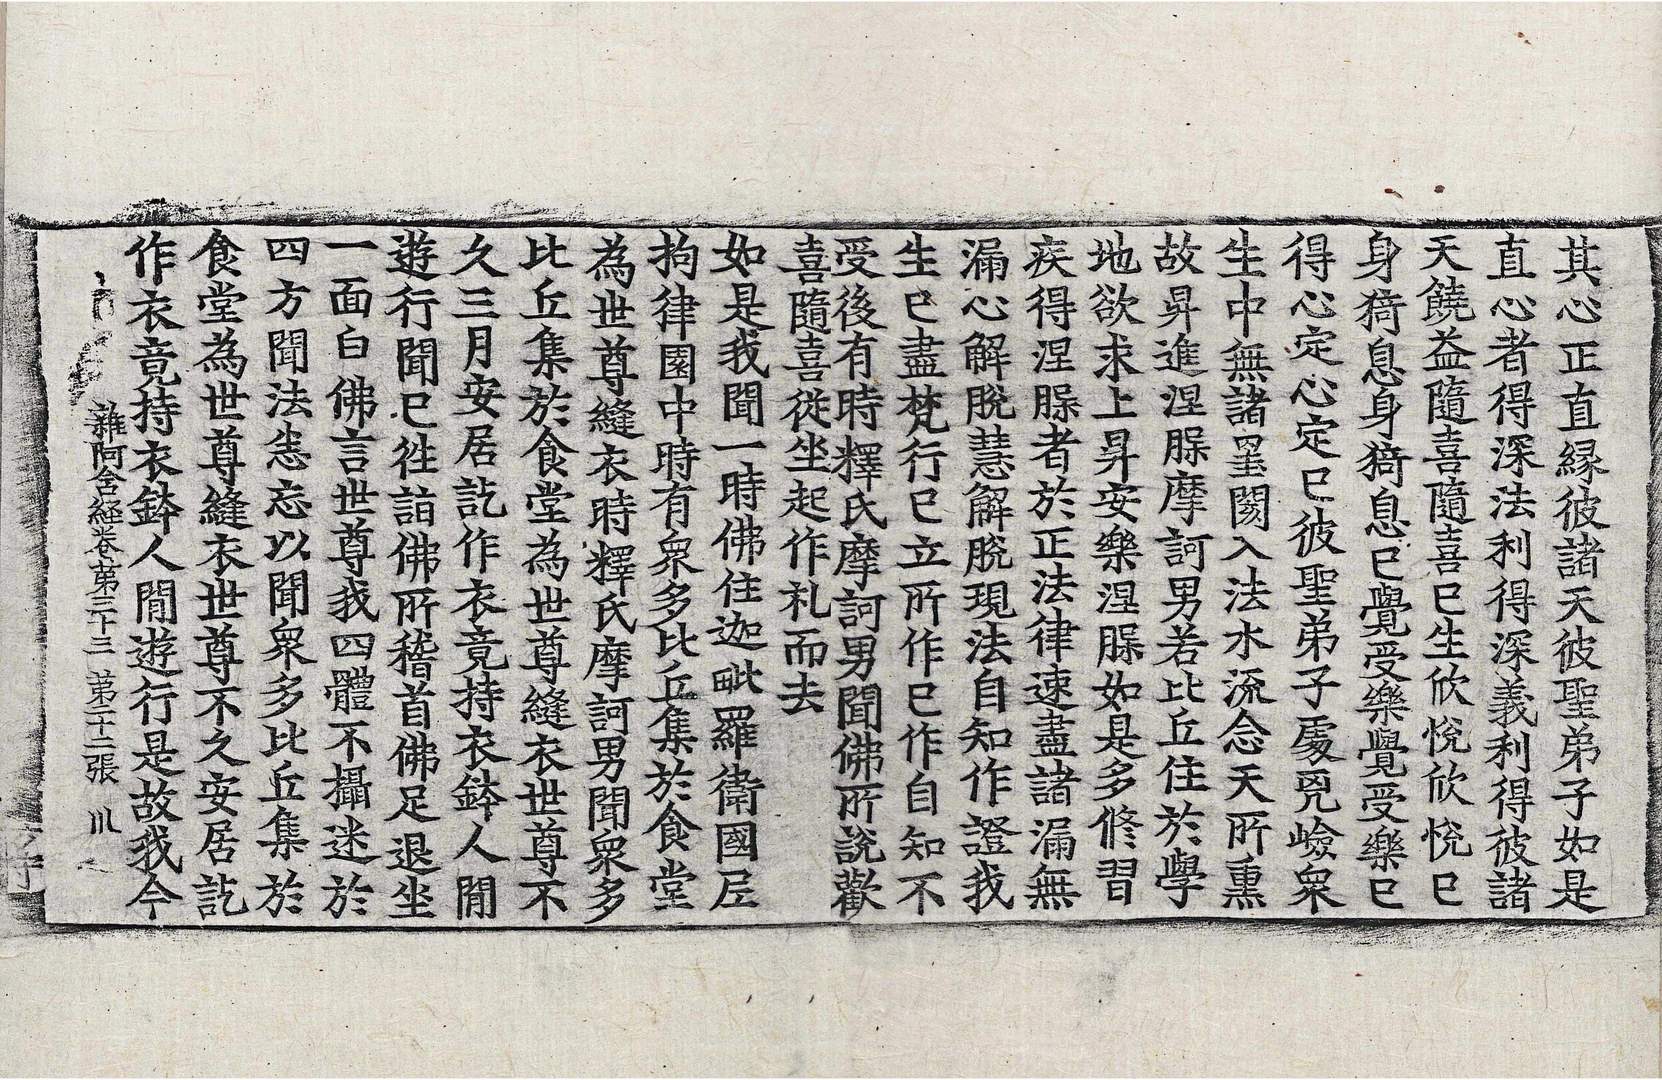 其心正直緣彼諸天彼聖弟子如是
直心者得深法利得深義利得彼諸
天饒益隨喜隨喜已生欣悅欣悅已
身猗息身猗息已覺受樂覺受樂已
得心定心定已彼聖弟子處兇嶮眾
生中無諸罣閡入法水流念天所熏
故昇進涅槃摩訶男若比丘住於學
地欲求上昇安樂涅槃如是多修習
疾得涅槃者於正法律速盡諸漏無
漏心解脫慧解脫現法自知作證我
生已盡梵行已立所作已作自知不
受後有時釋氏摩訶男聞佛所說歡
喜隨喜從坐起作礼而去
如是我聞一時佛住迦毗羅衛國尼
拘律園中時有眾多比丘集於食堂
為世尊縫衣時釋氏摩訶男聞眾多
比丘集於食堂為世尊縫衣世尊不
久三月安居訖作衣竟持衣鉢人間
遊行聞已往詣佛所稽首佛足退坐
一面白佛言世尊我四體不攝迷於
四方聞法悉忘以聞眾多比丘集於
食堂為世尊縫衣世尊不久安居訖
作衣竟持衣鉢人間遊行是故我今
雜阿含經卷第三十三 第二十二張